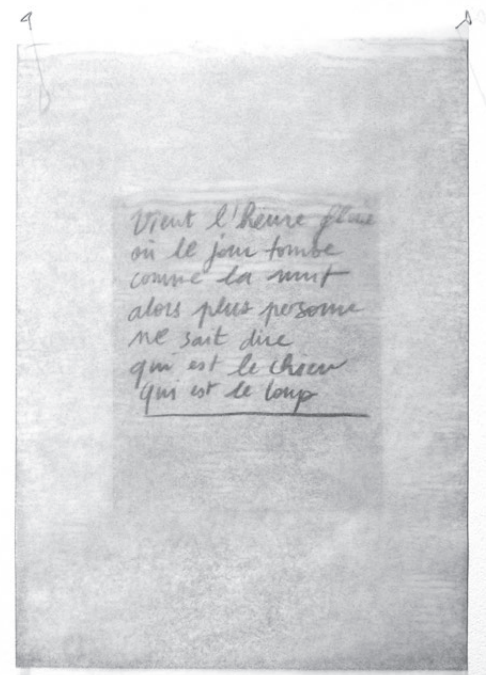 Vient l'heure floue
où le jour tombe
comme la nuit
alors plus personne
ne sait dire
qui est le chien
qui est le loup